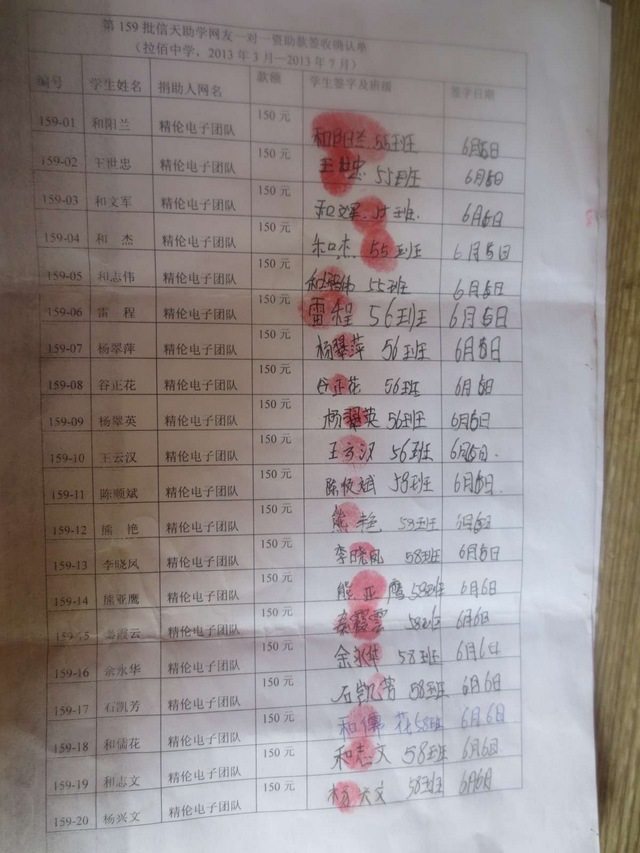 第 159 批信天助学网友一对一资助款签收确认单
（拉佰中学，2013 年 3 月—2013 年 7 月）
编号 学生姓名 捐助人网名 款额 学生签字及班级 签字日期
159-01 和阳兰 精伦电子团队 150 元 和阳兰 55班 6月6日
159-02 王世忠 精伦电子团队 150 元 王世忠 55班 6月6日
159-03 和文军 精伦电子团队 150 元 和文军 55班. 6月6日
159-04 和 杰 精伦电子团队 150 元 和杰 55班 6月6日
159-05 和志伟 精伦电子团队 150 元 和志伟 55班 6月6日
159-06 雷 程 精伦电子团队 150 元 雷程 56班 6月6日
159-07 杨翠萍 精伦电子团队 150 元 杨翠萍 56班 6月6日
159-08 谷正花 精伦电子团队 150 元 谷正花 56班 6月6日
159-09 杨翠英 精伦电子团队 150 元 杨翠英 56班 6月6日
159-10 王云汉 精伦电子团队 150 元 王云汉 56班 6月6日
159-11 陈顺斌 精伦电子团队 150 元 陈顺斌 58班 6月6日
159-12 熊 艳 精伦电子团队 150 元 熊艳 58班 6月6日
159-13 李晓凤 精伦电子团队 150 元 李晓凤 58班 6月6日
159-14 熊亚鹰 精伦电子团队 150 元 熊亚鹰 58班 6月6日
159-15 霞云 精伦电子团队 150 元 霞雲 58班 6月6日
159-16 余永华 精伦电子团队 150 元 余永华 58班 6月6日
159-17 石凯芳 精伦电子团队 150 元 石凯芳 58班 6月6日
159-18 和儒花 精伦电子团队 150 元 和儒花 58班 6月6日
159-19 和志文 精伦电子团队 150 元 和志文 58班 6月6日
159-20 杨兴文 精伦电子团队 150 元 杨兴文 58班 6月6日